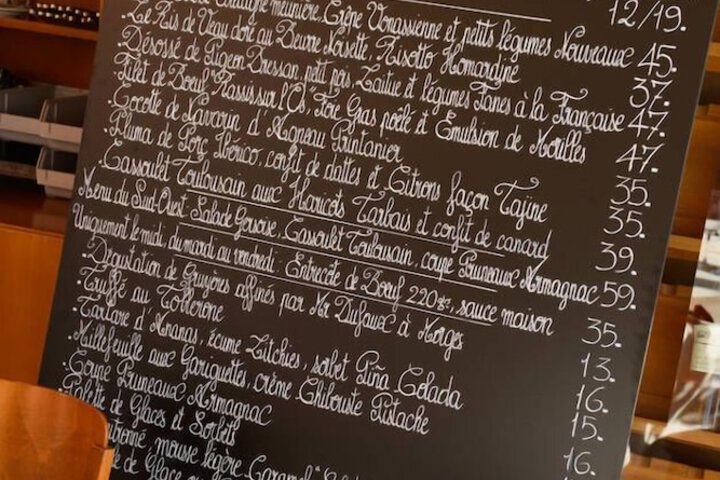 12/19.
meunière, Crène Vonassienne et petits légumes Nouveaux 45.
Le Ris de Veau doré au Beurre Noisette, Risotto Homardine 37.
Désossé de Pigeon Bressan, petit pois, Laitue et légumes Fanes à la Française 47.
Filet de Boeuf "Rassis sur l'Os", Foie Gras poêlé et Emulsion de Morilles 47.
Cocotte de Navarin d'Agneau Printanier 35.
Pluma de Porc Ibérico, confit de dattes et Citrons façon Tajine 35.
Cassoulet Toulousain aux Haricots Tarbais et confit de canard 39.
Menu du Sud-Ouest: Salade Gersoise, Cassoulet Toulousain, coupe Pruneaux Armagnac 59.
Uniquement le midi, du mardi au vendredi: Entrecôte de Boeuf 220gr, sauce maison 35.
Dégustation de Gruyères affinés par Mr Dufaux à Morges 13.
Truffé au Toblerone 16.
Tartare d'Ananas, écume Litchies, sorbet Piña Colada 15.
Millefeuille aux Gariguettes, crème Chibouste Pistache 16.
Coupe Pruneaux Armagnac
Palette de Glaces et Sorbets
mousse légère Caramel
de Glace